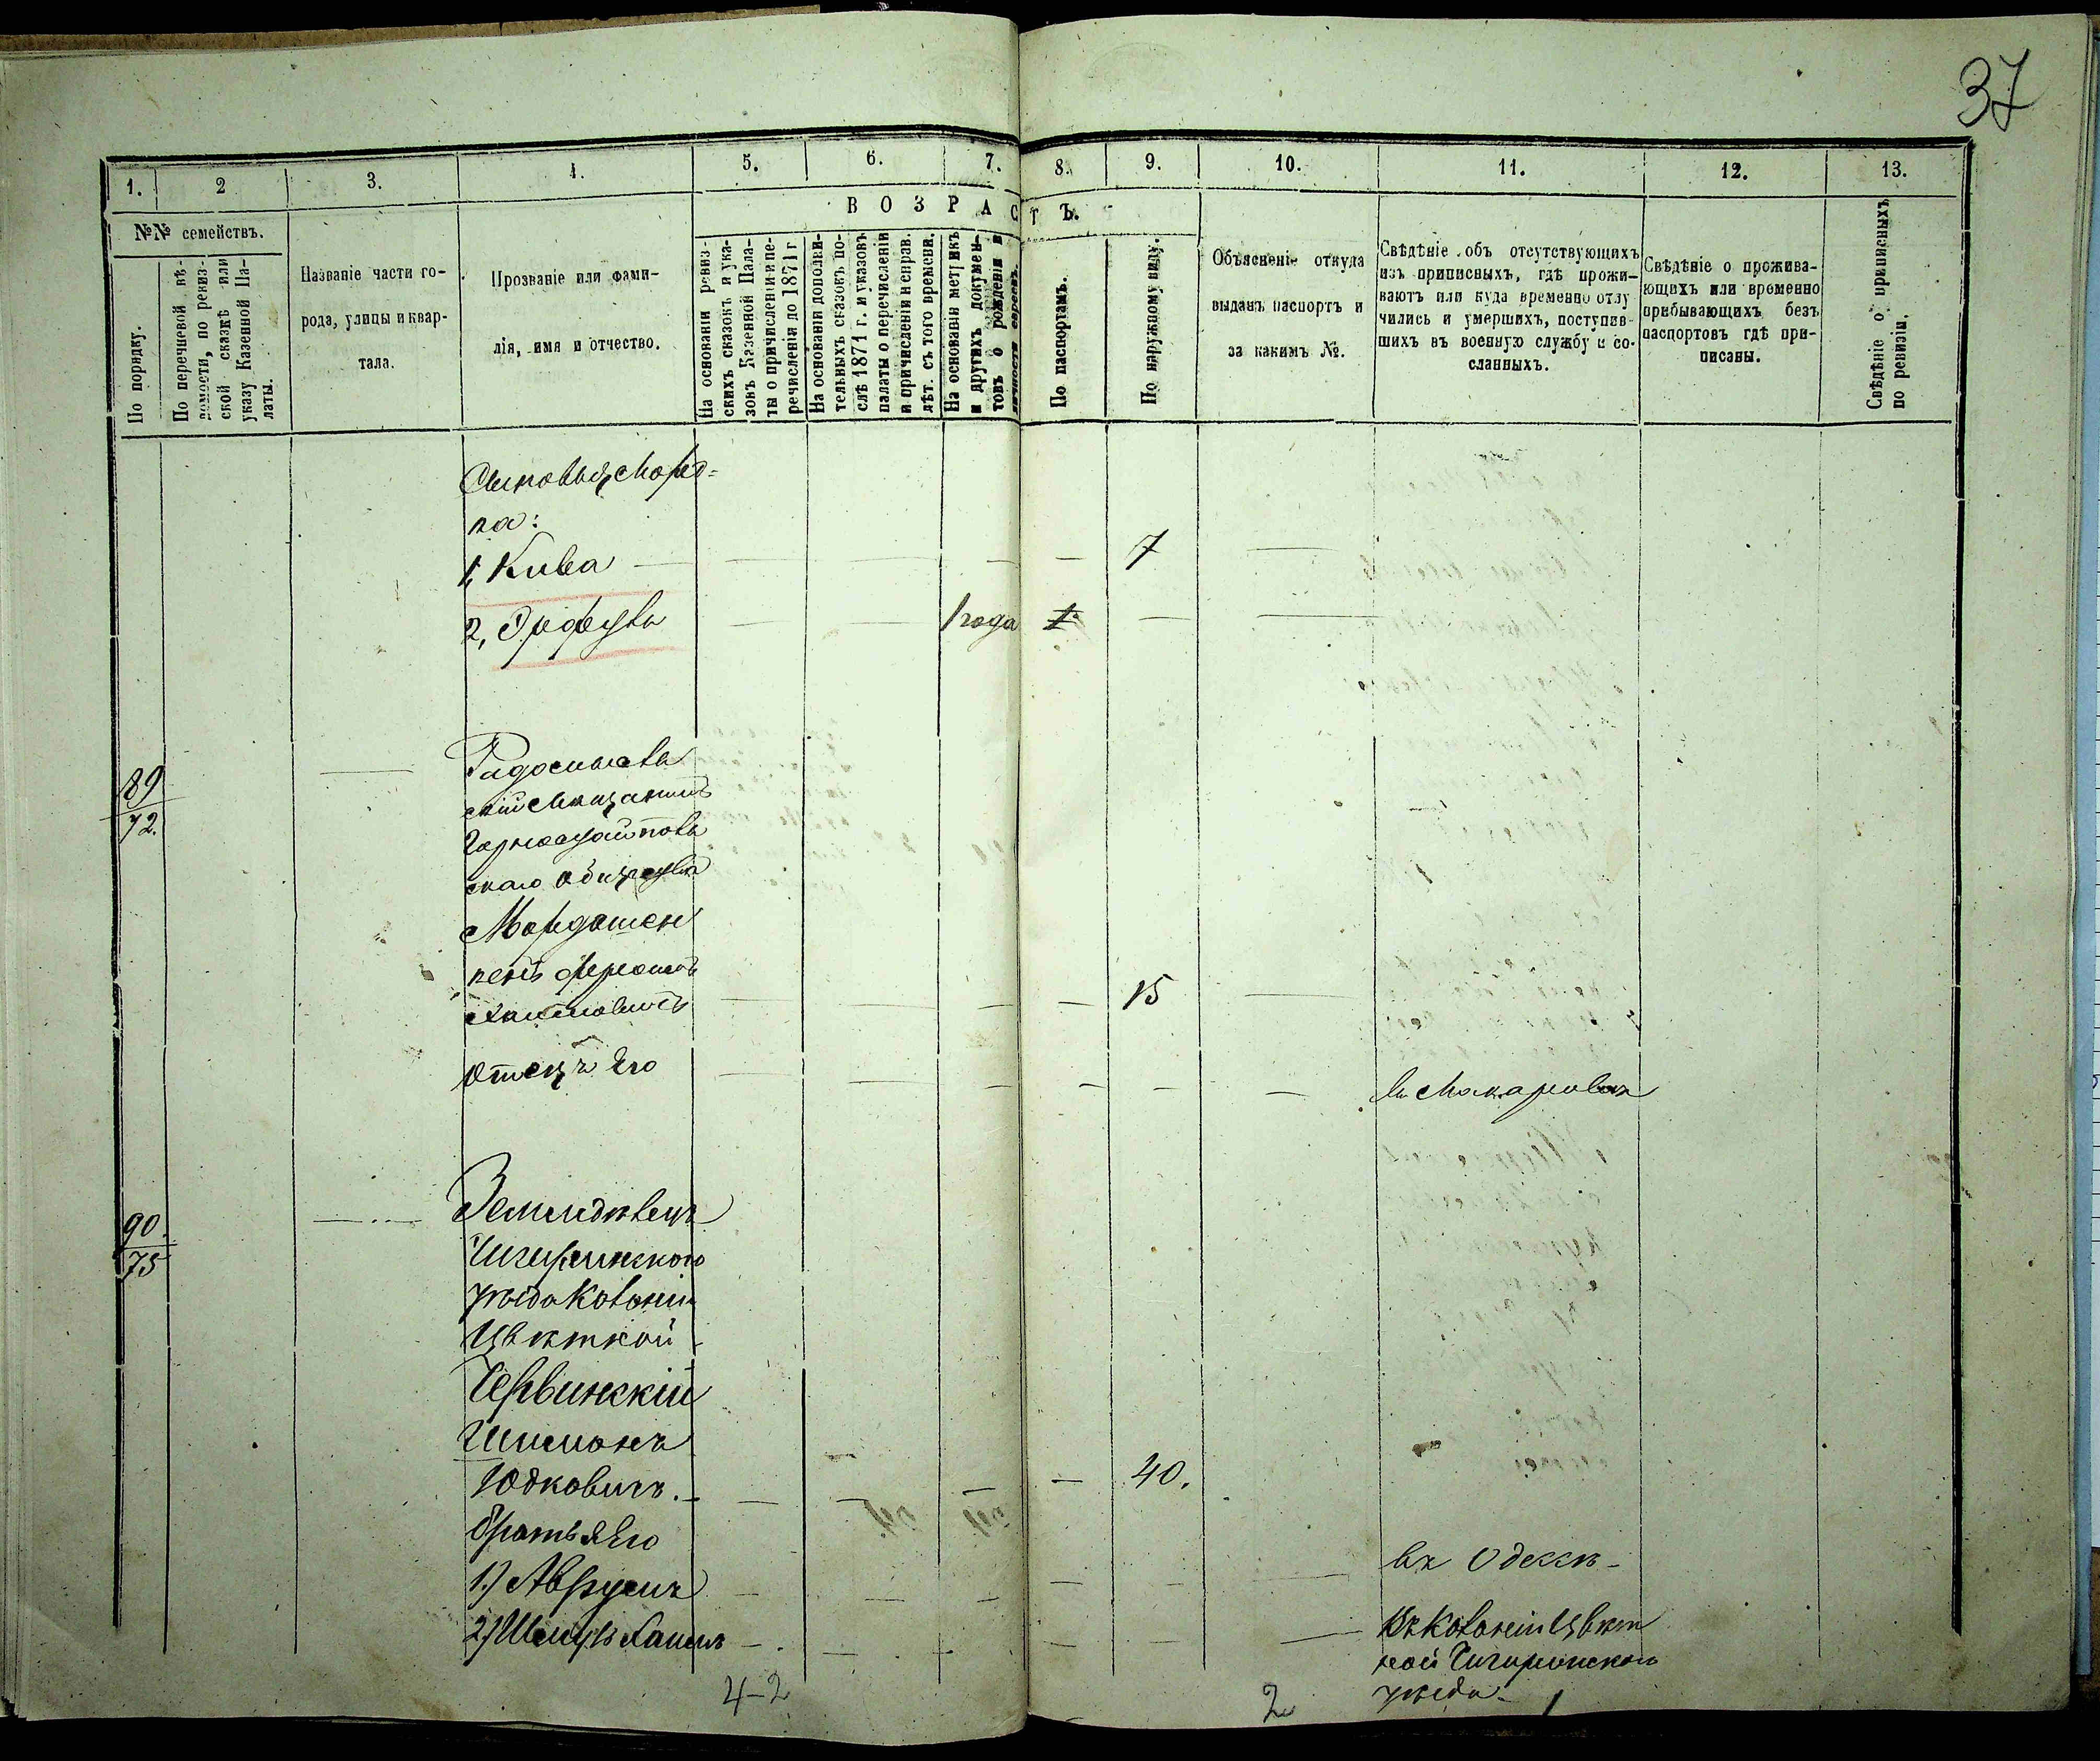 37
1.
2
3.
4.
5.
6.
7.
8.
9.
10.
11.
12.
13.
№№ семействъ.
По порядку.
По перечневой вѣ-
домости, по ревиз-
ской сказкѣ или
указу Казенной Па-
латы.
Названіе части го-
рода, улицы и квар-
тала.
Прозваніе или фами-
лія, имя и отчество.
ВОЗРАСТЪ.
На основаніи ревиз-
скихъ сказокъ и ука-
зовъ Казенной Пала-
ты о причисленіи и пе-
речисленіи до 1871 г
На основаніи дополни-
тельныхъ сказокъ по-
слѣ 1871 г. и указовъ
палаты о перечисленіи
и причисленіи и справ.
лѣт. съ того времени.
На основаніи метрикъ
и другихъ докумен-
товъ о рожденіи и
личности евреевъ.
По паспортамъ.
По наружному виду.
Объясненіе откуда
выданъ паспортъ и
за какимъ №.
Свѣдѣніе объ отсутствующихъ
изъ приписныхъ, гдѣ прожи-
ваютъ или куда временно отлу
чились и умершихъ, поступив-
шихъ въ военную службу и со-
сланныхъ.
Свѣдѣніе о прожива-
ющихъ или временно
прибывающихъ безъ
паспортовъ гдѣ при-
писаны.
Свѣдѣніе о приписныхъ
по ревизіи.
Сыновья Морд=
ка:
1, Кива — — — — — 7 —
2, — — 1 года 1 — —
89
72.
—
скій Мещанинъ
скаго Общества
— — — — 15 —
Отецъ Его — — — — — — въ Макаровѣ
90.
75
— Земледѣлецъ
Чигиринскаго
уѣзда Колоніи
Цвѣтной
Червинскій
Шимонъ
Юдковичъ. — — — — — 40.
братья Его
1.) Аврумъ — — — — — въ Одессѣ —
2) Шмуль Хаимъ — — — — — — Въ Колоніи Цвѣт
ной Чигиринскаго
уѣзда —
4-2
2
1